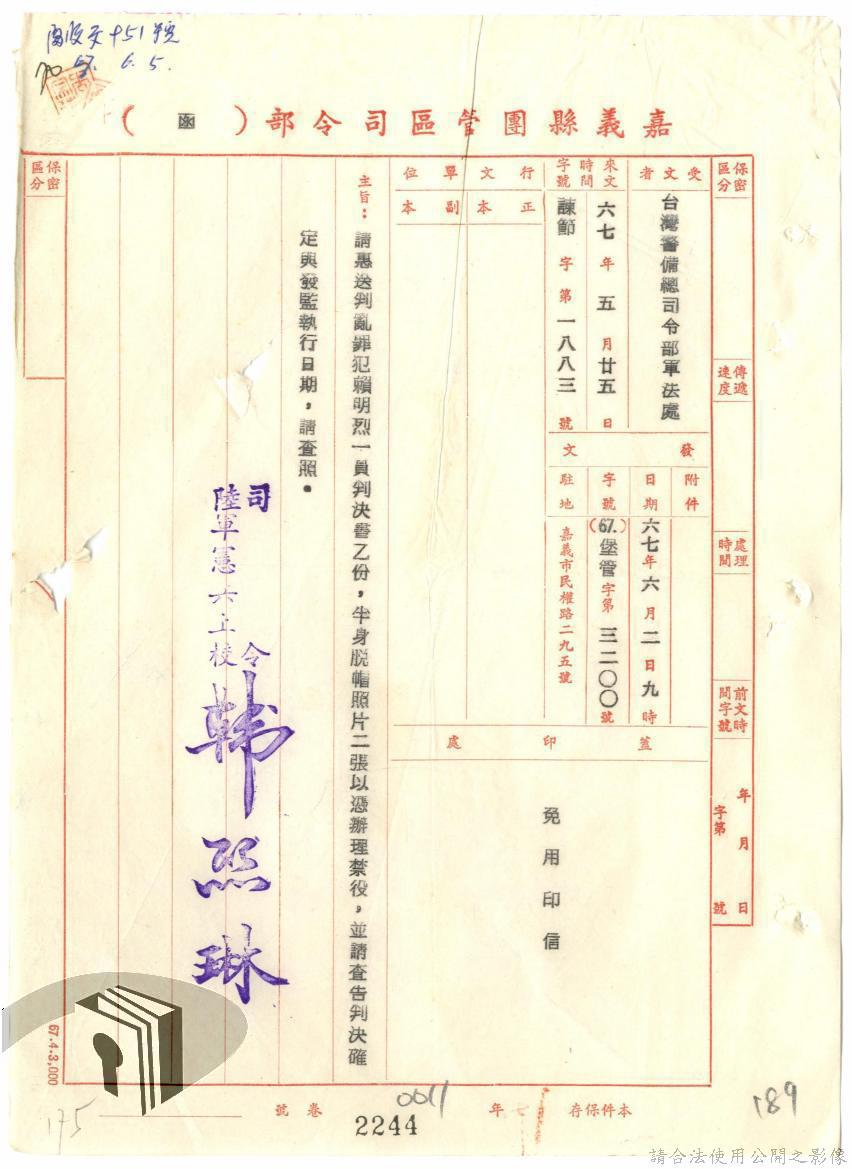 67. 6. 5.
嘉義縣團管區司令部（函）
保密區分
傳遞速度
處理時間
前文時間字號
年 月 日
字第 號
受文者
台灣警備總司令部軍法處
來文時間字號
六七年五月廿五日
諫節字第一八八三號
行文單位
正本
副本
發文
附件
日期
六七年六月二日九時
字號
(67.)堡管字第三二〇〇號
駐地
嘉義市民權路二九五號
蓋印處
免用印信
主旨：請惠送判亂罪犯賴明烈一員判決書乙份，半身脱帽照片二張以憑辦理禁役，並請查告判決確
定與發監執行日期，請查照。
司令
陸軍憲六上校
韩熙琳
保密區分
67.4.3,000
本件保存 年
0011
卷號
2244
175
189
請合法使用公開之影像